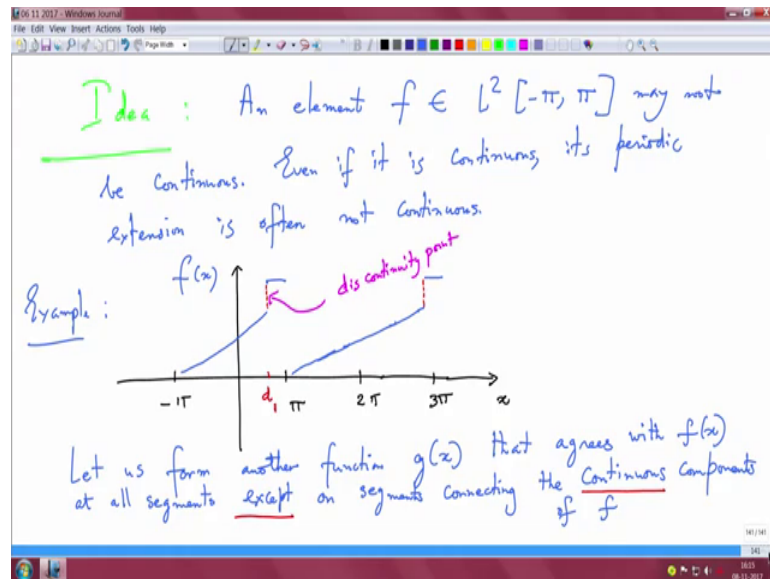 06 11 2017 - Windows Journal
File Edit View Insert Actions Tools Help
Page Width
Idea : An element f ∈ L² [-π, π] may not
be continuous. Even if it is continuous, its periodic
extension is often not continuous.
f(x)
discontinuity point
Example :
-π d₁ π 2π 3π x
Let us form another function g(x) that agrees with f(x)
at all segments except on segments connecting the continuous components
of f
141/141
141
16:15
08-11-2017